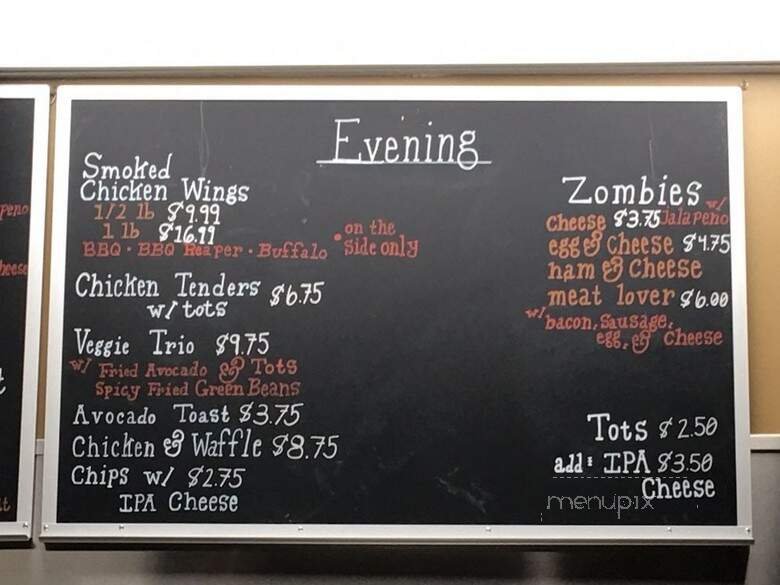 Evening
Smoked
Chicken Wings
1/2 lb $9.99
1 lb $16.99
BBQ • BBQ Reaper • Buffalo • on the
side only
Chicken Tenders $6.75
w/ tots
Veggie Trio $9.75
w/ Fried Avocado & Tots
Spicy Fried Green Beans
Avocado Toast $3.75
Chicken & Waffle $8.75
Chips w/ $2.75
IPA Cheese
Zombies
cheese $3.75 w/ Jalapeño
egg & cheese $4.75
ham & cheese
meat lover $6.00
w/ bacon, sausage,
egg, & cheese
Tots $2.50
add: IPA $3.50
Cheese
menupix